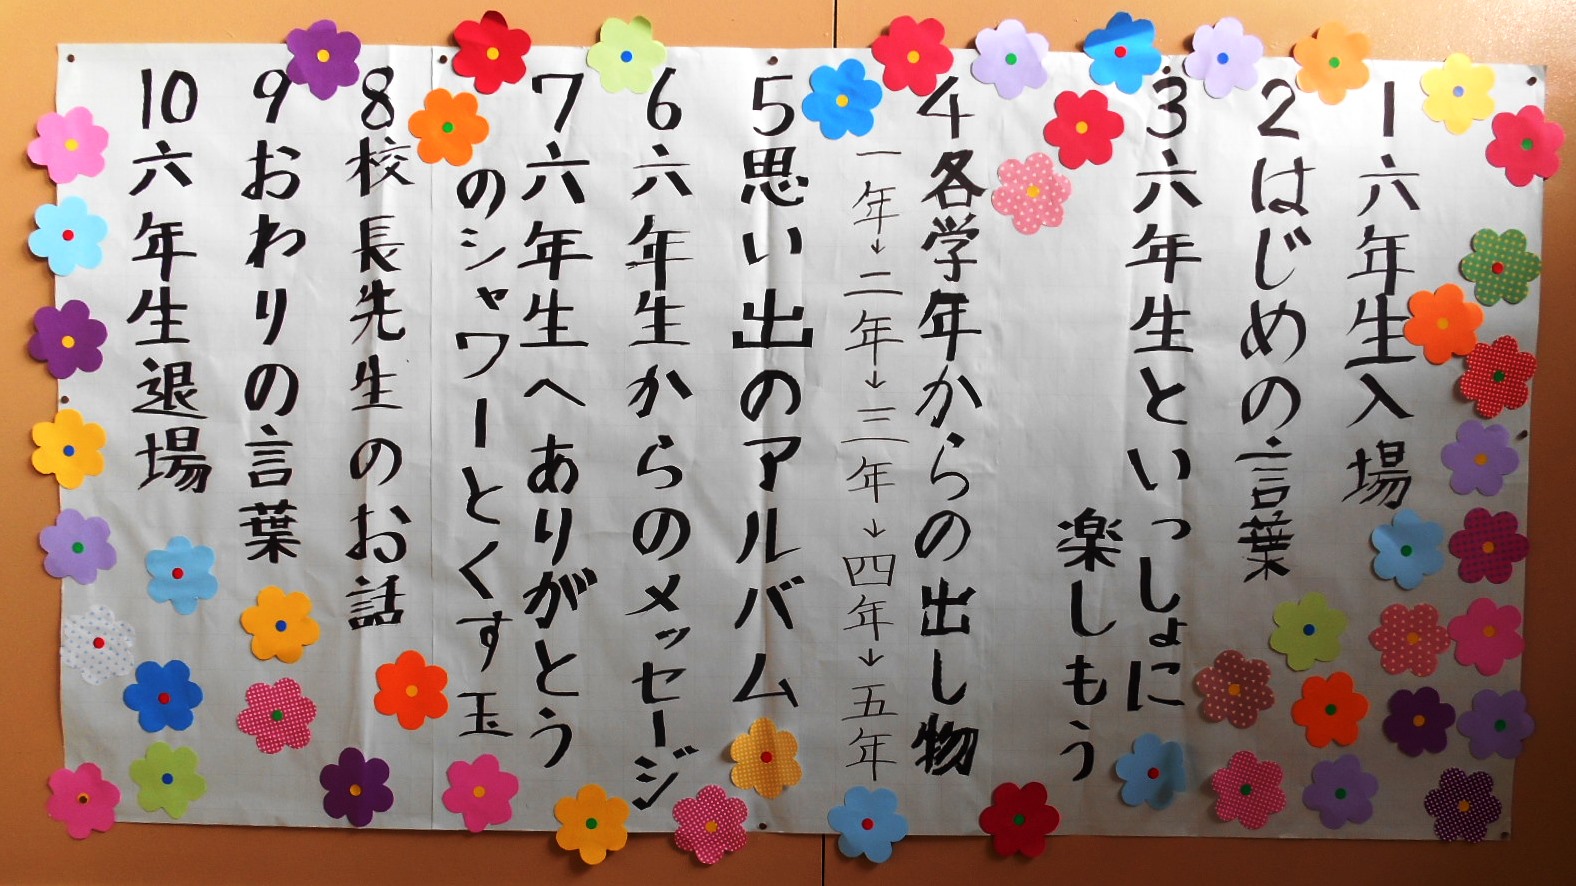 1六年生入場
2はじめの言葉
3六年生といっしょに
楽しもう
4各学年からの出し物
一年→二年→三年→四年→五年
5思い出のアルバム
6六年生からのメッセージ
7六年生へありがとう
のシャワーとくす玉
8校長先生のお話
9おわりの言葉
10六年生退場